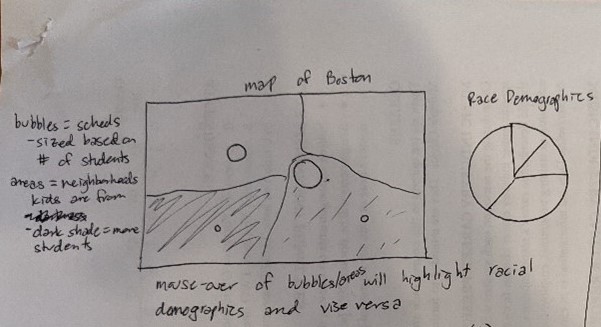 map of Boston
Race Demographics
bubbles = scheds
- sized based on
# of students
areas = neighborhoods
kids are from
- dark shade = more
students
mouse-over of bubbles/areas will highlight racial
demographics and vise versa